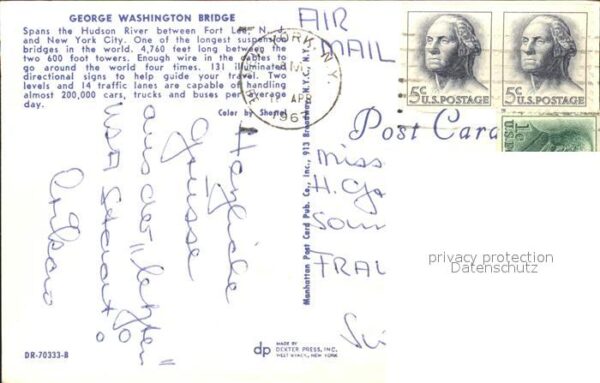 GEORGE WASHINGTON BRIDGE
Spans the Hudson River between Fort Lee, N. J.
and New York City. One of the longest suspension
bridges in the world. 4,760 feet long between the
two 600 foot towers. Enough wire in the cables to
go around the world four times. 131 illuminated
directional signs to help guide your travel. Two
levels and 14 traffic lanes are capable of handling
almost 200,000 cars, trucks and buses per average
day.
Color by Shostal
Herzliche
Grüsse
aus der "letzten"
USA
DR-70333-B
Manhattan Post Card Pub. Co., Inc., 913 Broadway, N.Y.C., N.Y.
dp
MADE BY
DEXTER PRESS, INC.
WEST NYACK, NEW YORK
AIR
MAIL
YORK, N.Y.
APR
196
5c
U.S. POSTAGE
5c
U.S. POSTAGE
1c
Post Card
Miss
H. Ga
Sou
FRAU
privacy protection
Datenschutz